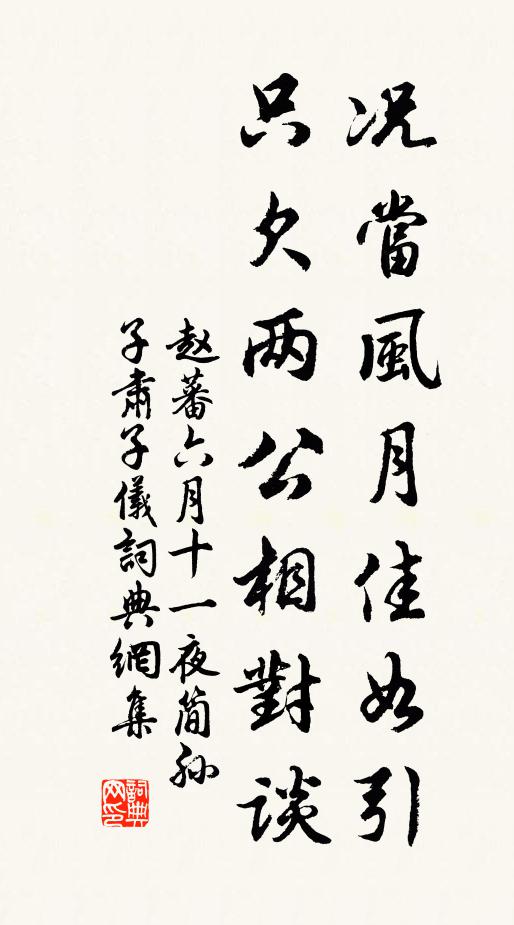 况當風月佳如引
只欠两公相對談
赵蕃六月十一夜简孙
子肃子儀詞典網集
詞典网印